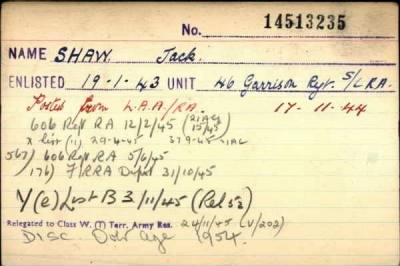 No. 14513235
NAME SHAW. Jack.
ENLISTED 19-1-43 UNIT 46 Garrison Regt. S/L RA.
Posted from L.A.A./RA. 17-11-44
606 Regt RA 12/2/45
x list (ii) 29-4-45
567) 606 Regt RA 5/6/45
176) F/RRA Depot 31/10/45
Y(e) List B 3/11/45 (Rel 52)
Relegated to Class W. (T) Terr. Army Res. 24/11/45 (V/202)
Disc. Over age 1954.